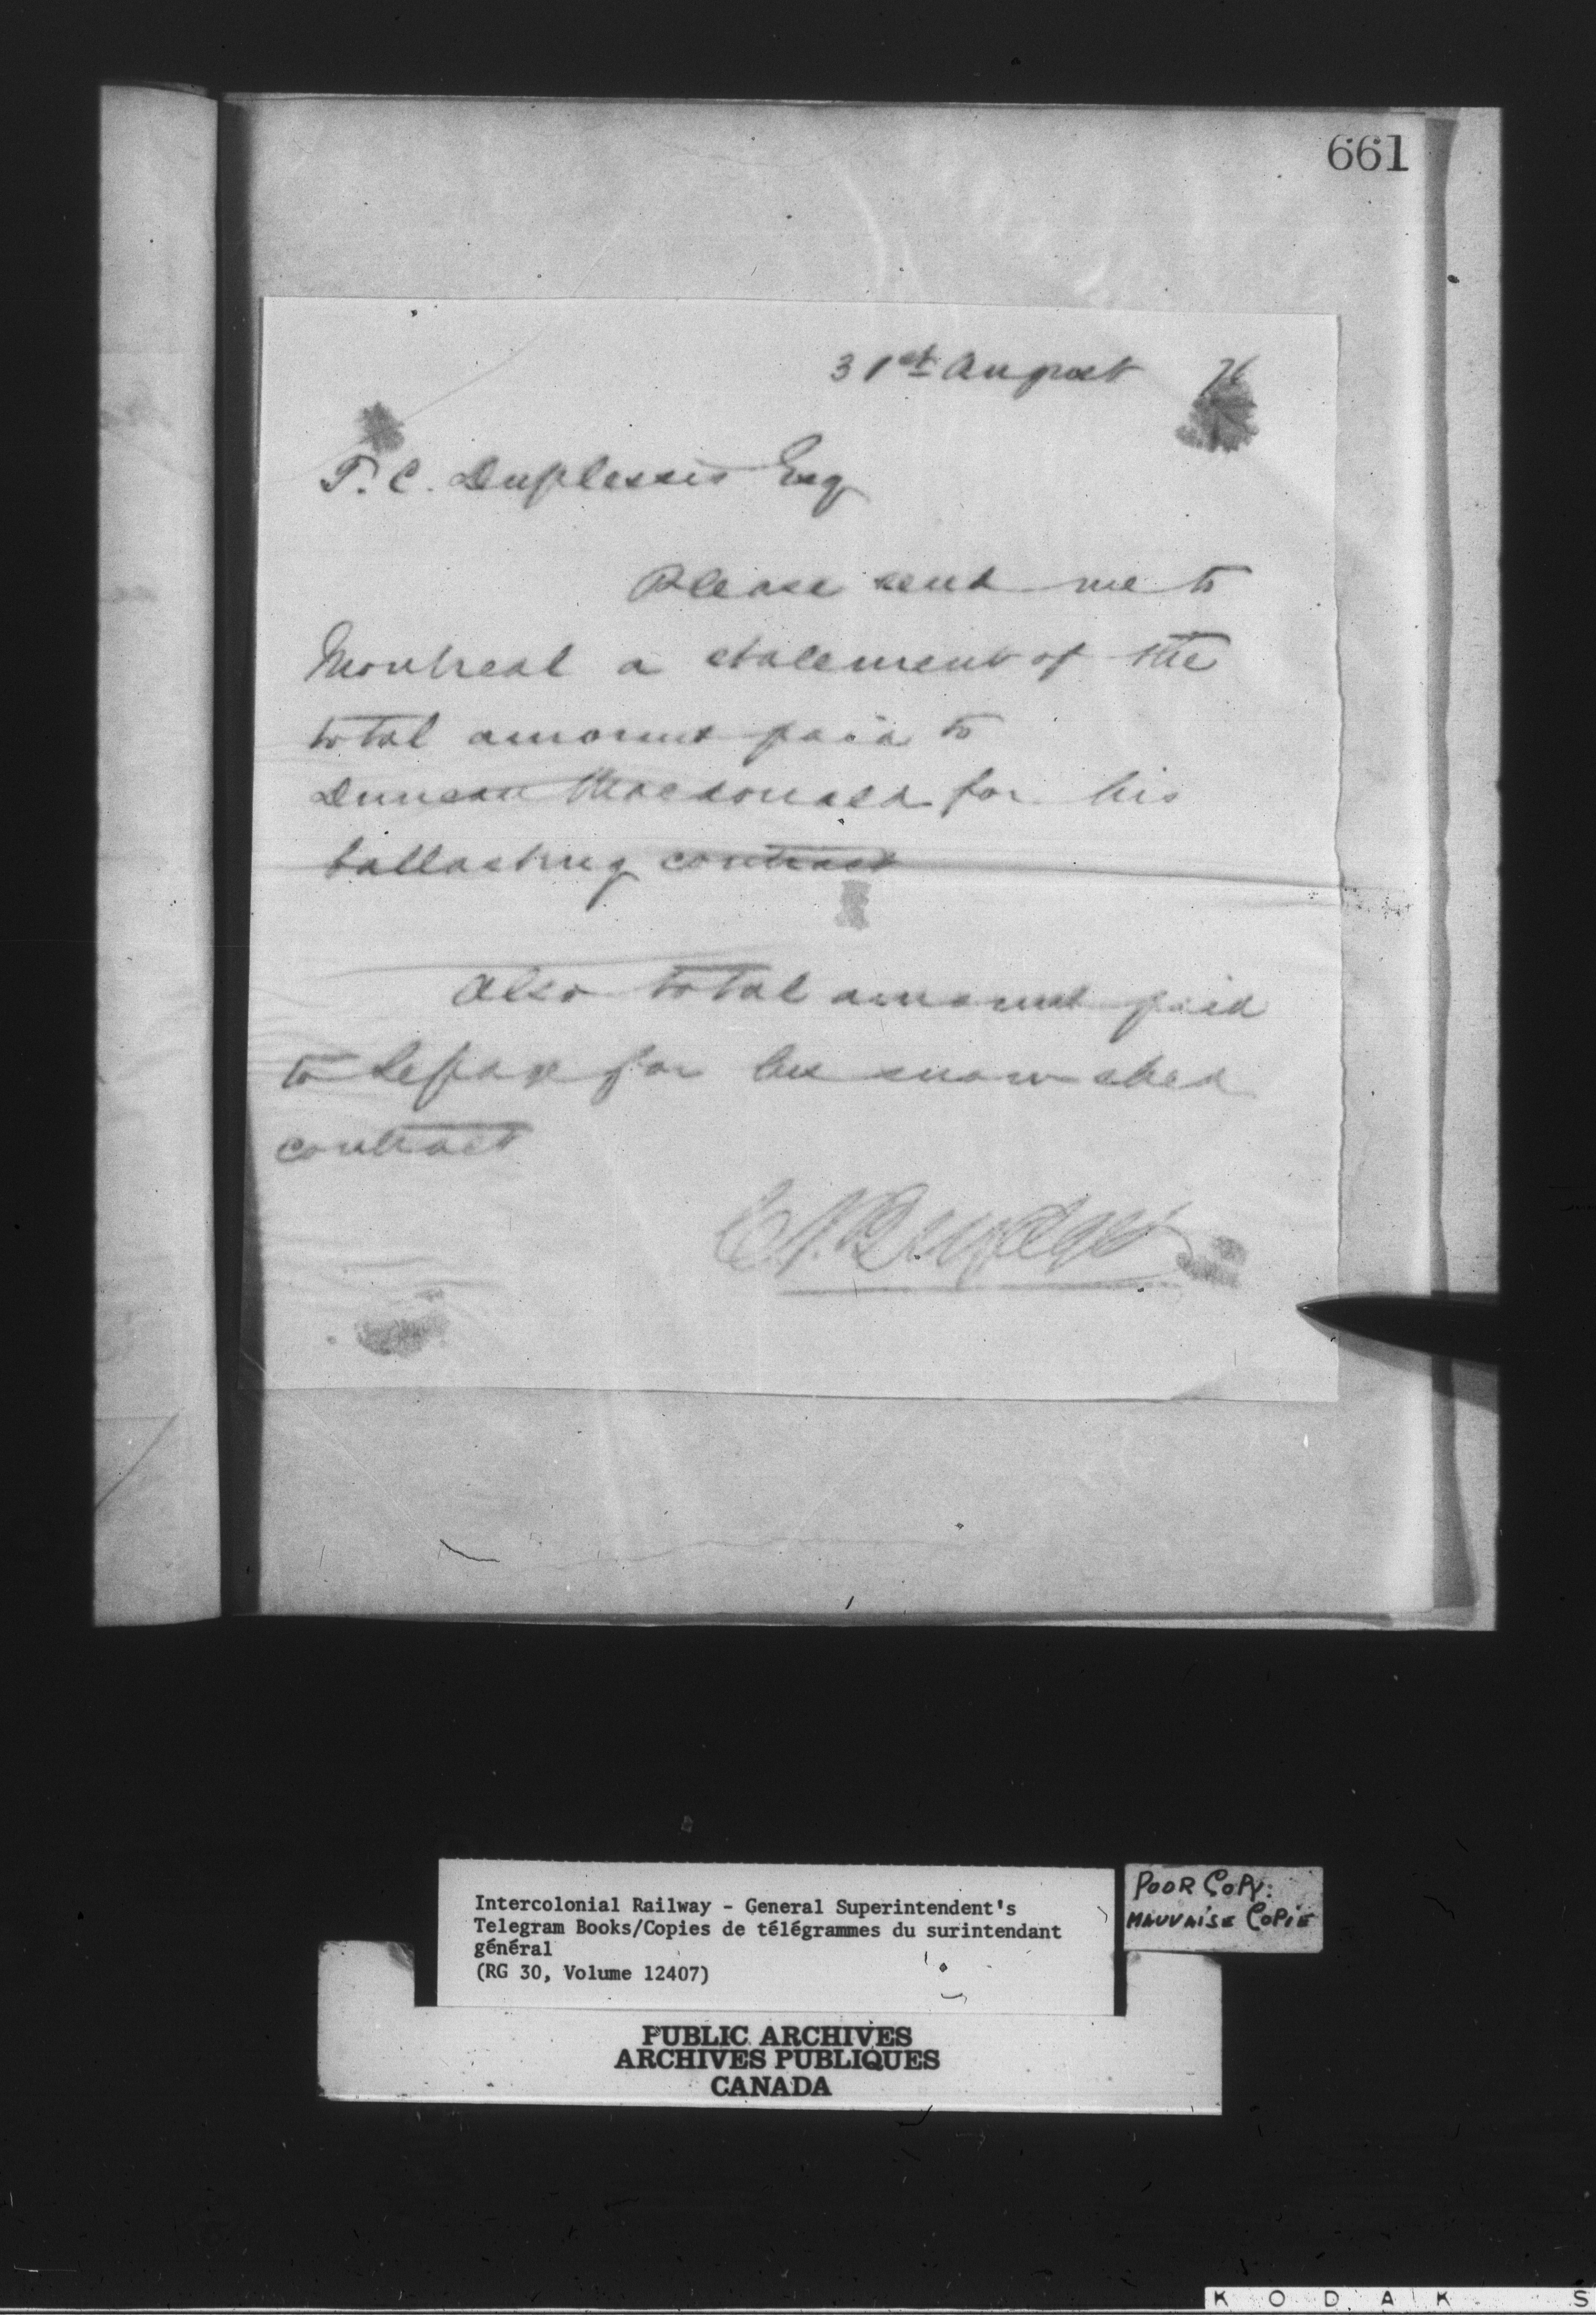 661
31st August 76
T. C. Duplessis Esq
Please send me to
Montreal a statement of the
total amount paid to
Duncan Macdonald for his
ballasting contract
Also total amount paid
to Lepage for his snow shed
contract
C J Brydges
Intercolonial Railway - General Superintendent's
Telegram Books/Copies de télégrammes du surintendant
général
(RG 30, Volume 12407)
POOR COPY:
MAUVAISE COPIE
PUBLIC ARCHIVES
ARCHIVES PUBLIQUES
CANADA
K O D A K S